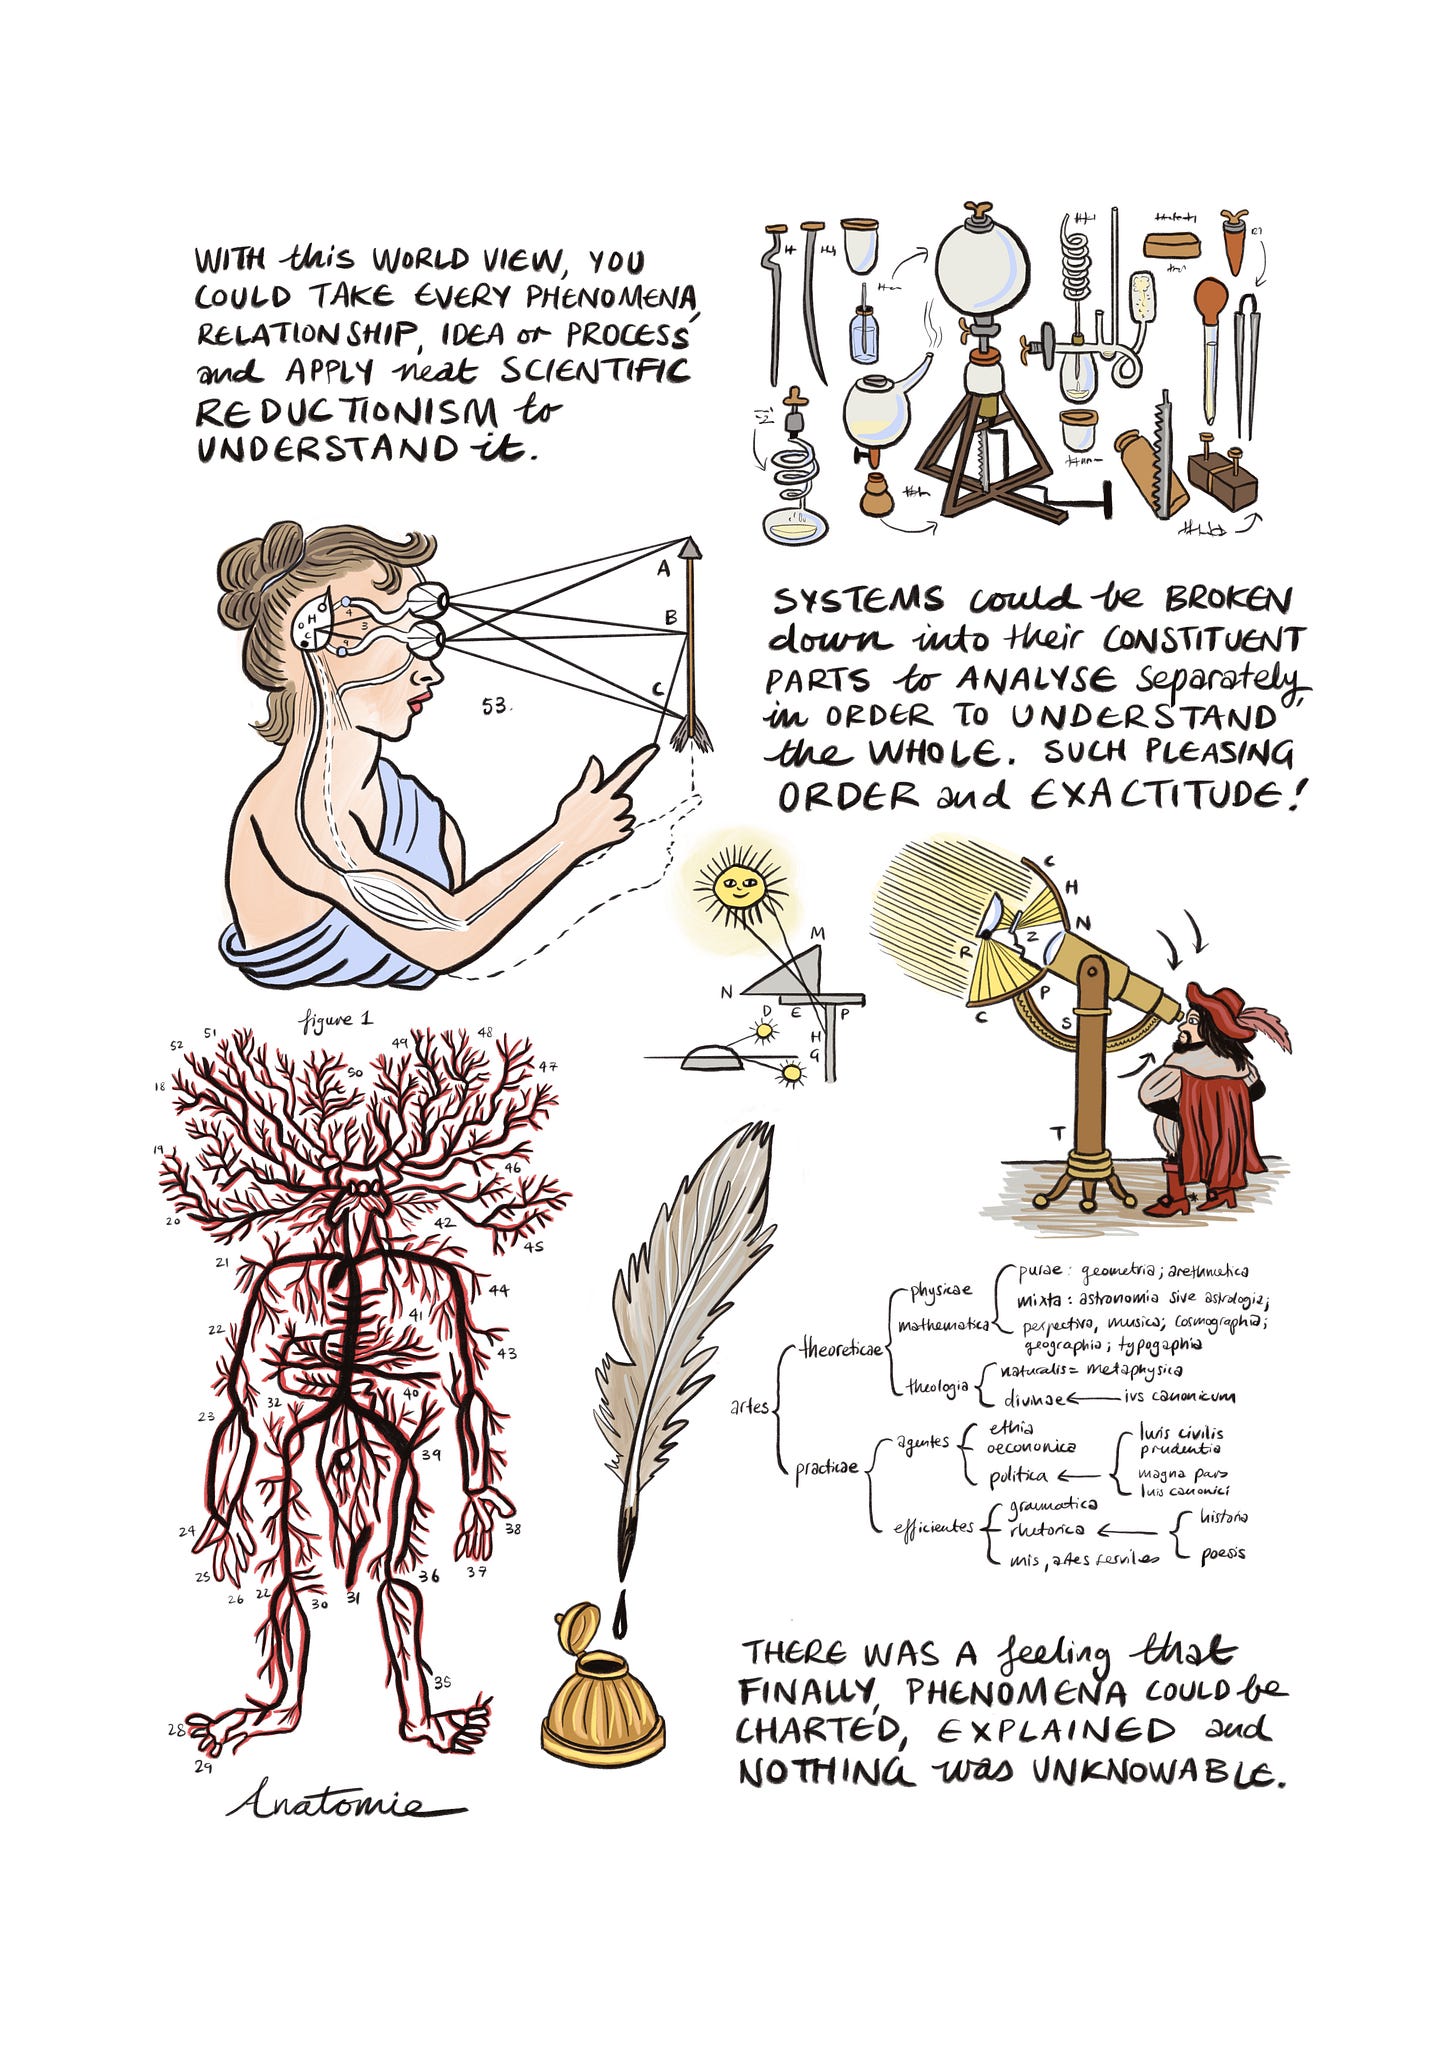 WITH this WORLD VIEW, YOU
COULD TAKE EVERY PHENOMENA,
RELATIONSHIP, IDEA or PROCESS
and APPLY neat SCIENTIFIC
REDUCTIONISM to
UNDERSTAND it.
A
B
C
H
4
3
53.
figure 1
SYSTEMS could be BROKEN
down into their CONSTITUENT
PARTS to ANALYSE Separately,
in ORDER TO UNDERSTAND
the WHOLE. SUCH PLEASING
ORDER and EXACTITUDE!
M
N
D
E
P
H
G
C
H
N
Z
R
P
C
S
T
52
51
50
49
48
47
18
19
20
46
42
45
21
44
22
41
43
23
32
40
39
24
38
25
26
22
30
31
36
37
35
28
29
Anatomie
artes
theoreticae
physicae
mathematica
purae : geometria ; arethmetica
mixta : astronomia sive astrologia;
perspectiva, musica; cosmographia;
geographia ; typogaphia
theologia
naturalis = metaphysica
divinae
ivs canonicum
practicae
agentes
ethia
oeconomica
politica
luris civilis
prudentia
magna pars
luis canonici
efficientes
grammatica
rhetorica
historia
poesis
THERE WAS A feeling that
FINALLY, PHENOMENA COULD be
CHARTED, EXPLAINED and
NOTHING was UNKNOWABLE.